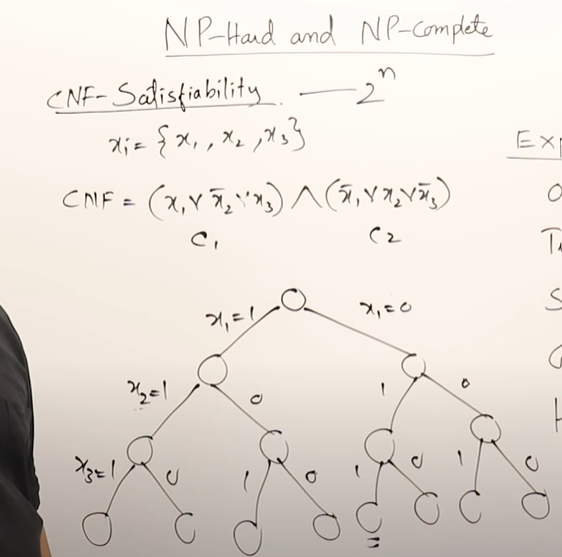 NP-Hard and NP-Complete
CNF-Satisfiability. — 2ⁿ
xᵢ = {x₁, x₂, x₃}
CNF = (x₁ ∨ x̄₂ ∨ x₃) ∧ (x̄₁ ∨ x₂ ∨ x̄₃)
C₁ C₂
x₁=1 x₁=0
x₂=1 0 1 0
x₃=1 0 1 0 1 0 1 0